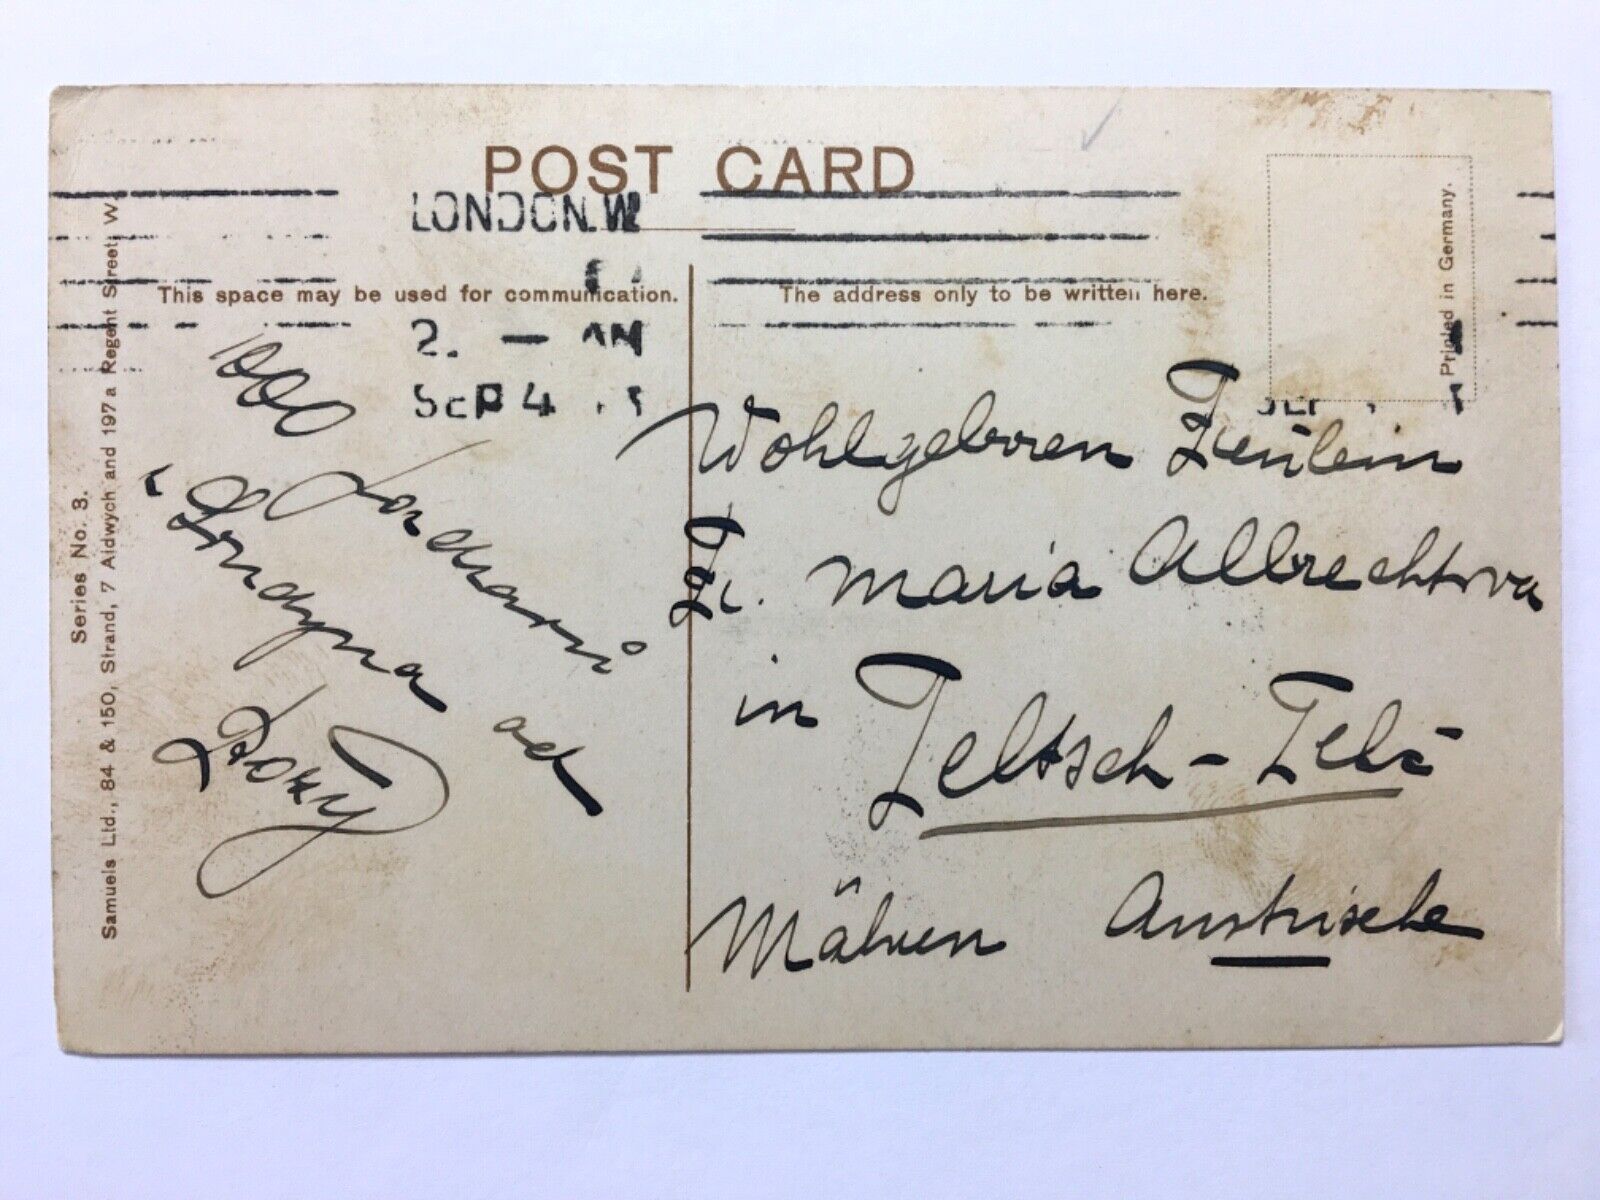 POST CARD
LONDON.W
This space may be used for communication.
The address only to be written here.
2. — AM
SEP 4
Printed in Germany.
Series No. 3.
Samuels Ltd., 84 & 150, Strand, 7 Aldwych and 197a Regent Street W.
1000
z Londýna od
Wohlgeboren Fräulein
Fr. Maria Albrechtova
in Teltsch - Telč
Mähren Austrische